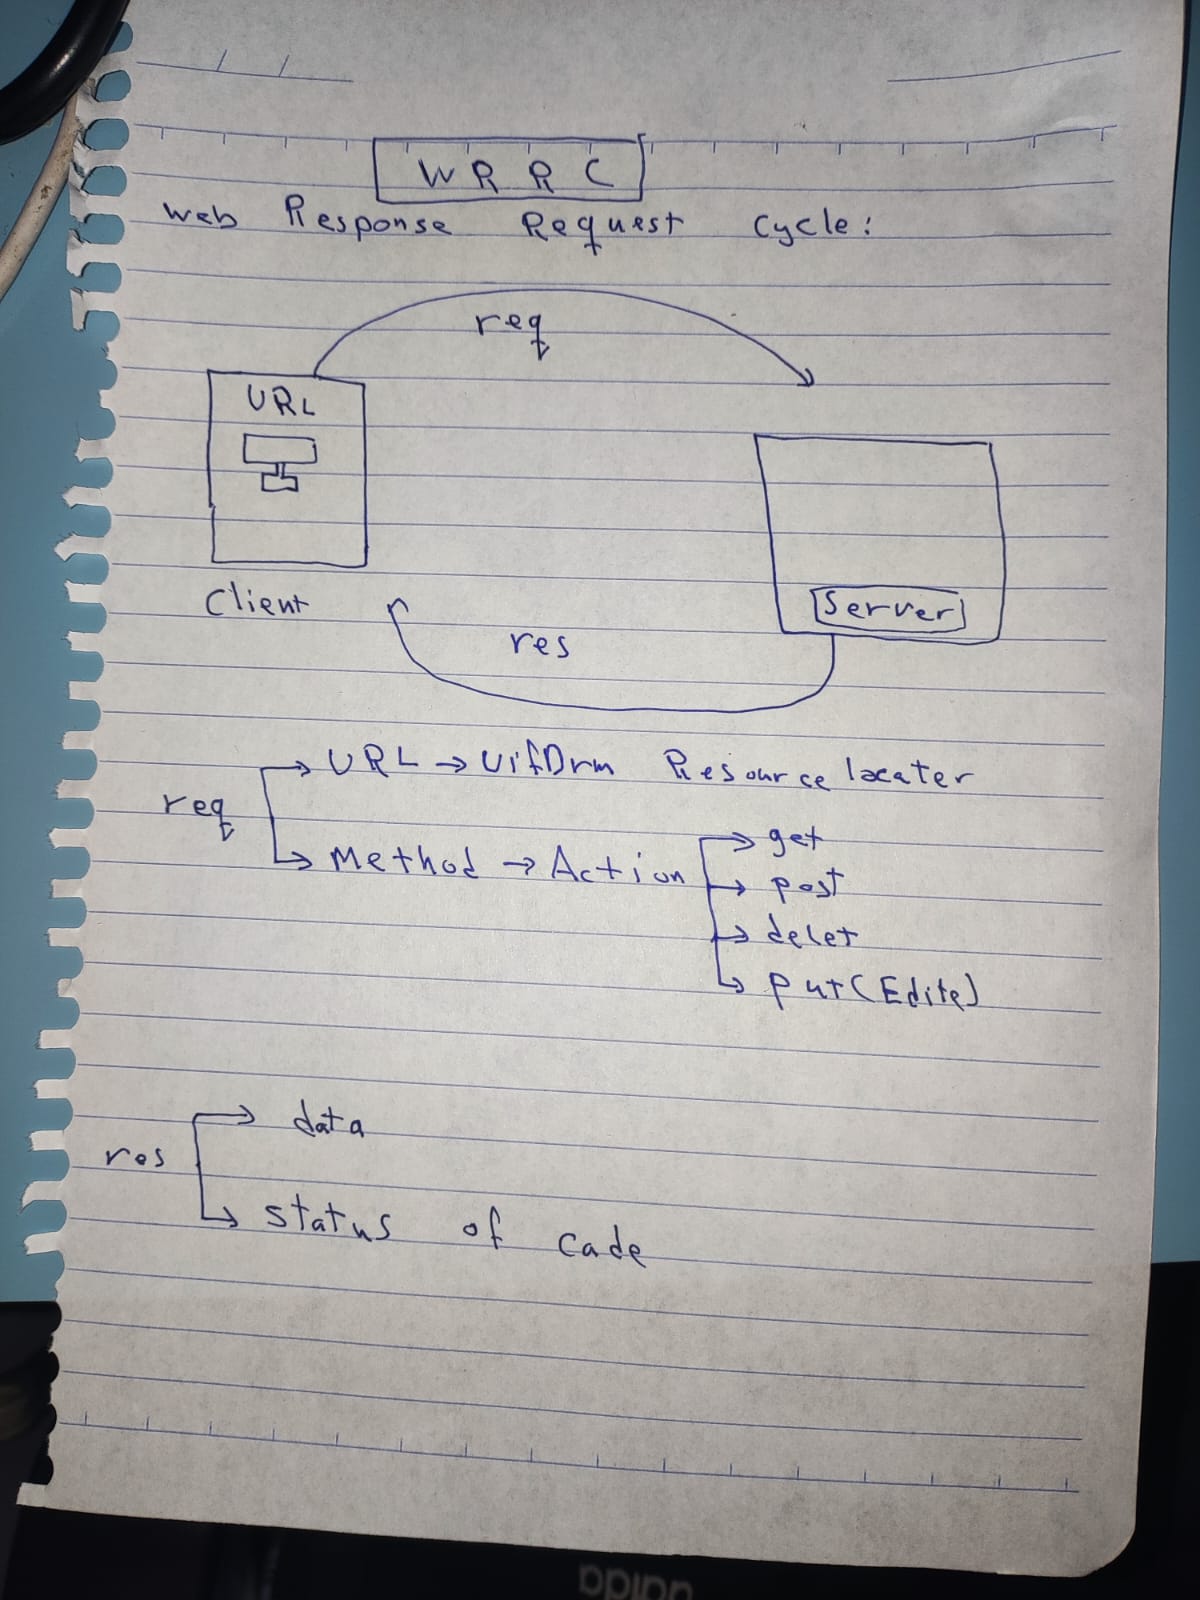 W R R C
Web Response Request Cycle:
req
URL
Client
Server
res
req
URL → UifOrm Resource locater
Method → Action
get
post
delet
put (Edite)
res
data
status of code